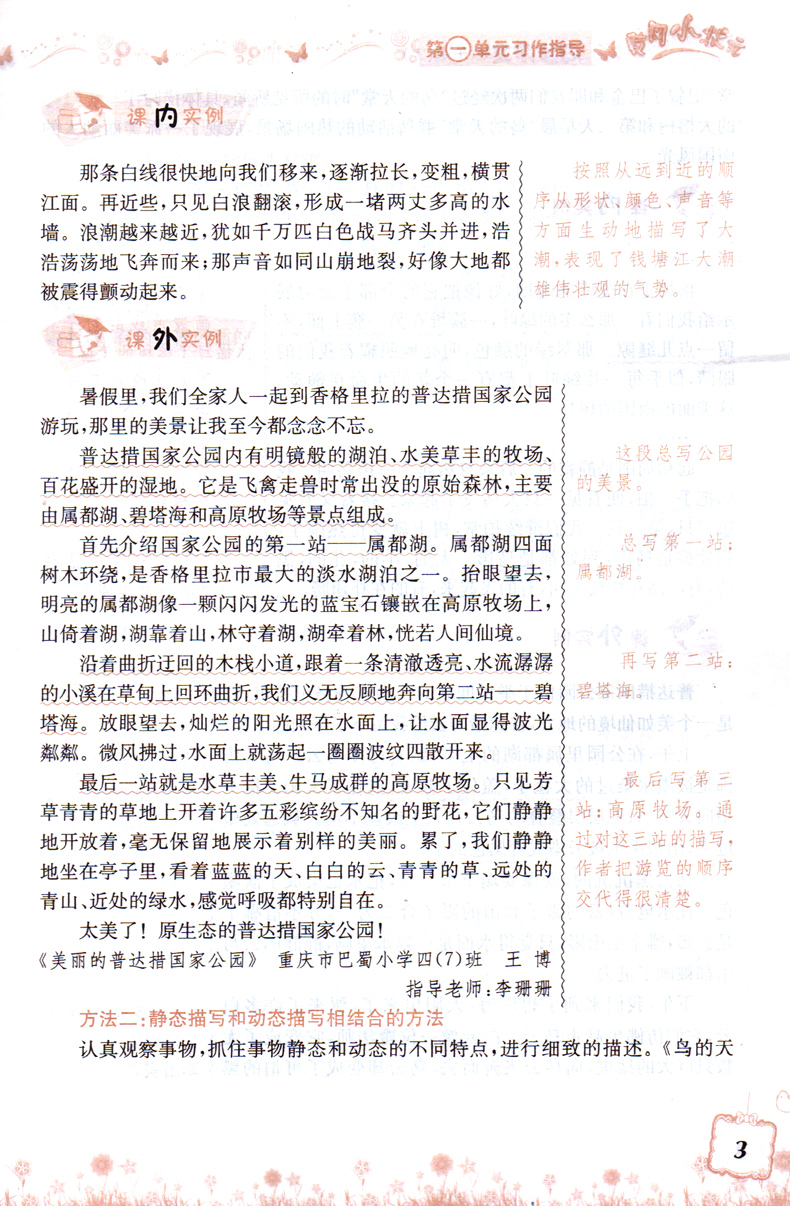 第一单元习作指导
小状元
课内实例
那条白线很快地向我们移来，逐渐拉长，变粗，横贯
江面。再近些，只见白浪翻滚，形成一堵两丈多高的水
墙。浪潮越来越近，犹如千万匹白色战马齐头并进，浩
浩荡荡地飞奔而来；那声音如同山崩地裂，好像大地都
被震得颤动起来。
按照从远到近的顺
序从形状、颜色、声音等
方面生动地描写了大
潮，表现了钱塘江大潮
雄伟壮观的气势。
课外实例
暑假里，我们全家人一起到香格里拉的普达措国家公园
游玩，那里的美景让我至今都念念不忘。
普达措国家公园内有明镜般的湖泊、水美草丰的牧场、
百花盛开的湿地。它是飞禽走兽时常出没的原始森林，主要
由属都湖、碧塔海和高原牧场等景点组成。
这段总写公园
的美景。
首先介绍国家公园的第一站——属都湖。属都湖四面
树木环绕，是香格里拉市最大的淡水湖泊之一。抬眼望去，
明亮的属都湖像一颗闪闪发光的蓝宝石镶嵌在高原牧场上，
山倚着湖，湖靠着山，林守着湖，湖牵着林，恍若人间仙境。
总写第一站：
属都湖。
沿着曲折迂回的木栈小道，跟着一条清澈透亮、水流潺潺
的小溪在草甸上回环曲折，我们义无反顾地奔向第二站——碧
塔海。放眼望去，灿烂的阳光照在水面上，让水面显得波光
粼粼。微风拂过，水面上就荡起一圈圈波纹四散开来。
再写第二站：
碧塔海。
最后一站就是水草丰美、牛马成群的高原牧场。只见芳
草青青的草地上开着许多五彩缤纷不知名的野花，它们静静
地开放着，毫无保留地展示着别样的美丽。累了，我们静静
地坐在亭子里，看着蓝蓝的天、白白的云、青青的草、远处的
青山、近处的绿水，感觉呼吸都特别自在。
最后写第三
站：高原牧场。通
过对这三站的描写，
作者把游览的顺序
交代得很清楚。
太美了！原生态的普达措国家公园！
《美丽的普达措国家公园》 重庆市巴蜀小学四（7）班 王 博
指导老师：李珊珊
方法二：静态描写和动态描写相结合的方法
认真观察事物，抓住事物静态和动态的不同特点，进行细致的描述。《鸟的天
3